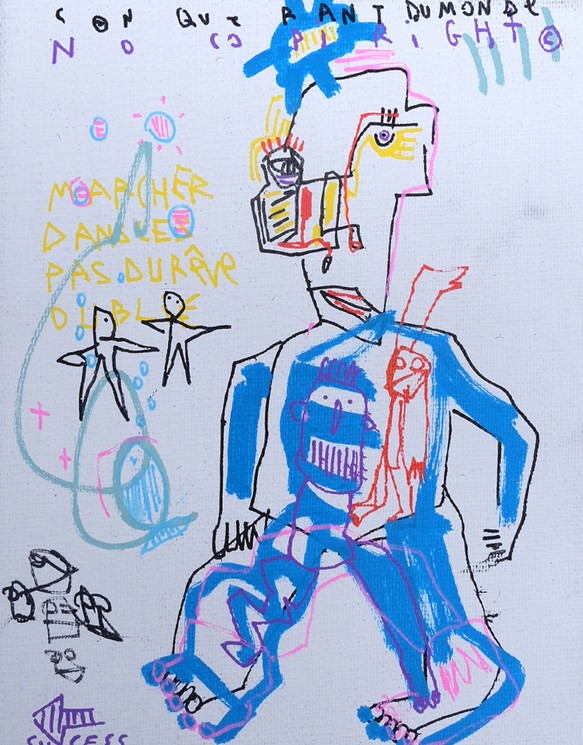 CONQUERANT DU MONDE
NO COPIRIGHT ©
MARCHER
DANS LES
PAS DU RÊVE
OUBLIÉ
SUCCESS